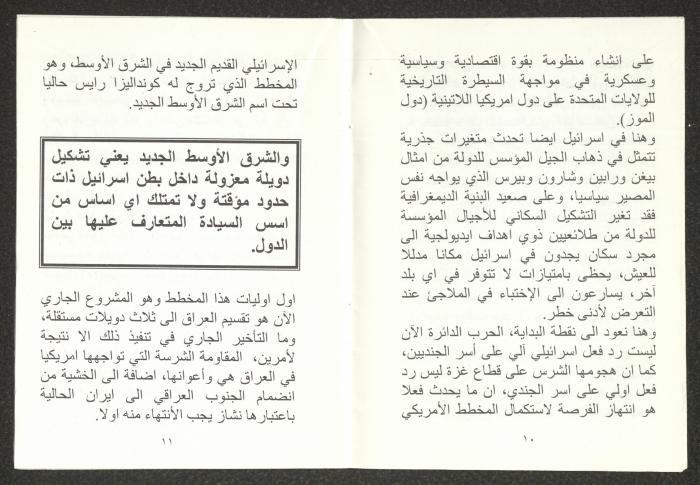 على انشاء منظومة بقوة اقتصادية وسياسية
وعسكرية في مواجهة السيطرة التاريخية
للولايات المتحدة على دول امريكيا اللاتينية (دول
الموز).
وهنا في اسرائيل ايضا تحدث متغيرات جذرية
تتمثل في ذهاب الجيل المؤسس للدولة من امثال
بيغن ورابين وشارون وبيرس الذي يواجه نفس
المصير سياسيا، وعلى صعيد البنية الديمغرافية
فقد تغير التشكيل السكاني للأجيال المؤسسة
للدولة من طلائعيين ذوي اهداف ايديولوجية الى
مجرد سكان يجدون في اسرائيل مكانا مدللا
للعيش، يحظى بامتيازات لا تتوفر في اي بلد
آخر، يسارعون الى الإختباء في الملاجئ عند
التعرض لأدنى خطر.
وهنا نعود الى نقطة البداية، الحرب الدائرة الآن
ليست رد فعل اسرائيلي آلي على أسر الجنديين،
كما ان هجومها الشرس على قطاع غزة ليس رد
فعل اولي على اسر الجندي، ان ما يحدث فعلا
هو انتهاز الفرصة لاستكمال المخطط الأمريكي
١٠
الإسرائيلي القديم الجديد في الشرق الأوسط، وهو
المخطط الذي تروج له كونداليزا رايس حاليا
تحت اسم الشرق الأوسط الجديد.
والشرق الأوسط الجديد يعني تشكيل
دويلة معزولة داخل بطن اسرائيل ذات
حدود مؤقتة ولا تمتلك اي اساس من
اسس السيادة المتعارف عليها بين
الدول.
اول اوليات هذا المخطط وهو المشروع الجاري
الآن هو تقسيم العراق الى ثلاث دويلات مستقلة،
وما التأخير الجاري في تنفيذ ذلك الا نتيجة
لأمرين، المقاومة الشرسة التي تواجهها امريكيا
في العراق هي وأعوانها، اضافة الى الخشية من
انضمام الجنوب العراقي الى ايران الحالية
باعتبارها نشاز يجب الأنتهاء منه اولا.
١١